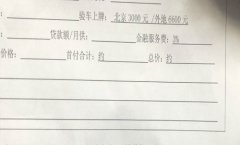 : 验车上牌: 北京3000元/外地6600元
: 贷款额/月供: 金融服务费: 3%
价格: 首付合计: 约 总价: 约